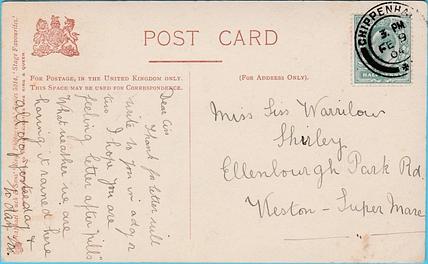 POST CARD
FOR POSTAGE, IN THE UNITED KINGDOM ONLY.
THIS SPACE MAY BE USED FOR CORRESPONDENCE.
(FOR ADDRESS ONLY).
CHIPPENHAM
3. PM
FE 9
04
Dear Ciss
Thanks for letter will
write to you in a day or
two I hope you are
feeling better after "pills"
What weather we are
having it rained here
all day yesterday &
to day.
Miss Siss Warrilow
Shirley
Ellenbourgh Park Rd.
Weston-Super Mare